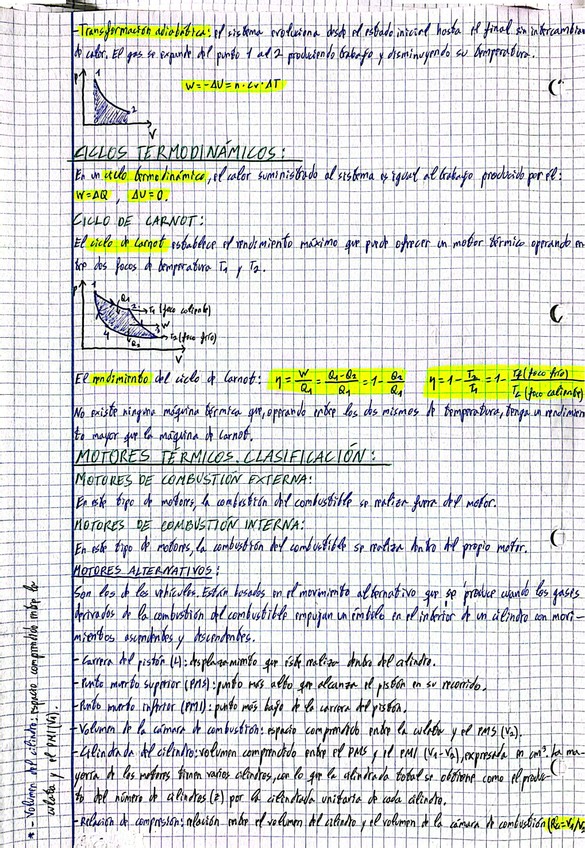 -Transformación adiabática: el sistema evoluciona desde el estado inicial hasta el final sin intercambian
do calor. El gas se expande del punto 1 al 2 produciendo trabajo y disminuyendo su temperatura.
P 1 2 V
W=-ΔU=n·cv·ΔT
CICLOS TERMODINÁMICOS:
En un ciclo termodinámico, el calor suministrado al sistema es igual al trabajo producido por él:
W=ΔQ, ΔU=0.
CICLO DE CARNOT:
El ciclo de Carnot establece el rendimiento máximo que puede ofrecer un motor térmico operando en
tre dos focos de temperatura T₁ y T₂.
P 1 Q₁ 2 → T₁ (foco caliente)
W
4 Q₂ 3 → T₂ (foco frío)
V
El rendimiento del ciclo de Carnot: η = W/Q₁ = Q₁-Q₂/Q₁ = 1- Q₂/Q₁ η = 1- T₂/T₁ = 1- Tf (foco frío)/Tc (foco caliente)
No existe ninguna máquina térmica que, operando entre los dos mismos de temperatura, tenga un rendimien
to mayor que la máquina de Carnot.
MOTORES TÉRMICOS. CLASIFICACIÓN:
MOTORES DE COMBUSTIÓN EXTERNA:
En este tipo de motores, la combustión del combustible se realiza fuera del motor.
MOTORES DE COMBUSTIÓN INTERNA:
En este tipo de motores, la combustión del combustible se realiza dentro del propio motor.
MOTORES ALTERNATIVOS:
Son los de los vehículos. Están basados en el movimiento alternativo que se produce cuando los gases
derivados de la combustión del combustible empujan un émbolo en el interior de un cilindro con movi-
mientos ascendentes y descendentes.
-Carrera del pistón (L): desplazamiento que éste realiza dentro del cilindro.
-Punto muerto superior (PMS): punto más alto que alcanza el pistón en su recorrido.
-Punto muerto inferior (PMI): punto más bajo de la carrera del pistón.
-Volumen de la cámara de combustión: espacio comprendido entre la culata y el PMS (V₂).
-Cilindrada del cilindro: volumen comprendido entre el PMS y el PMI (V₁-V₂), expresada en cm³. La ma-
yoría de los motores tienen varios cilindros, con lo que la cilindrada total se obtiene como el produc-
to del número de cilindros (z) por la cilindrada unitaria de cada cilindro.
-Relación de compresión: relación entre el volumen del cilindro y el volumen de la cámara de combustión (Rc=V₁/V₂
* - Volumen del cilindro: espacio comprendido entre la
culata y el PMI (V₁).